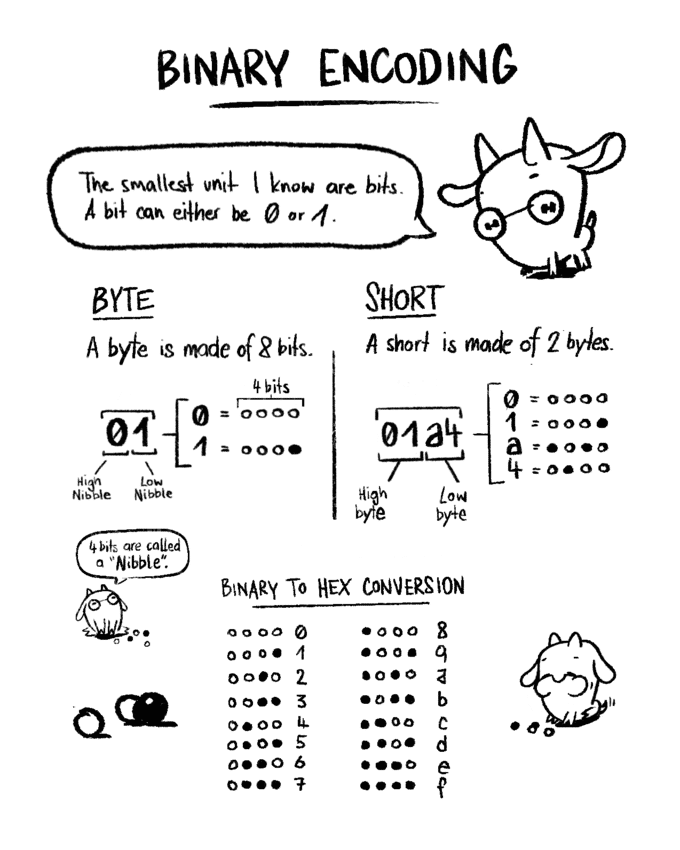 BINARY ENCODING
The smallest unit I know are bits.
A bit can either be 0 or 1.
BYTE
A byte is made of 8 bits.
4 bits
01
0 = ○○○○
1 = ○○○●
High
Nibble
Low
Nibble
SHORT
A short is made of 2 bytes.
01a4
0 = ○○○○
1 = ○○○●
a = ●○●○
4 = ○●○○
High
byte
Low
byte
4 bits are called
a "Nibble".
BINARY TO HEX CONVERSION
○○○○ 0
○○○● 1
○○●○ 2
○○●● 3
○●○○ 4
○●○● 5
○●●○ 6
○●●● 7
●○○○ 8
●○○● 9
●○●○ a
●○●● b
●●○○ c
●●○● d
●●●○ e
●●●● f